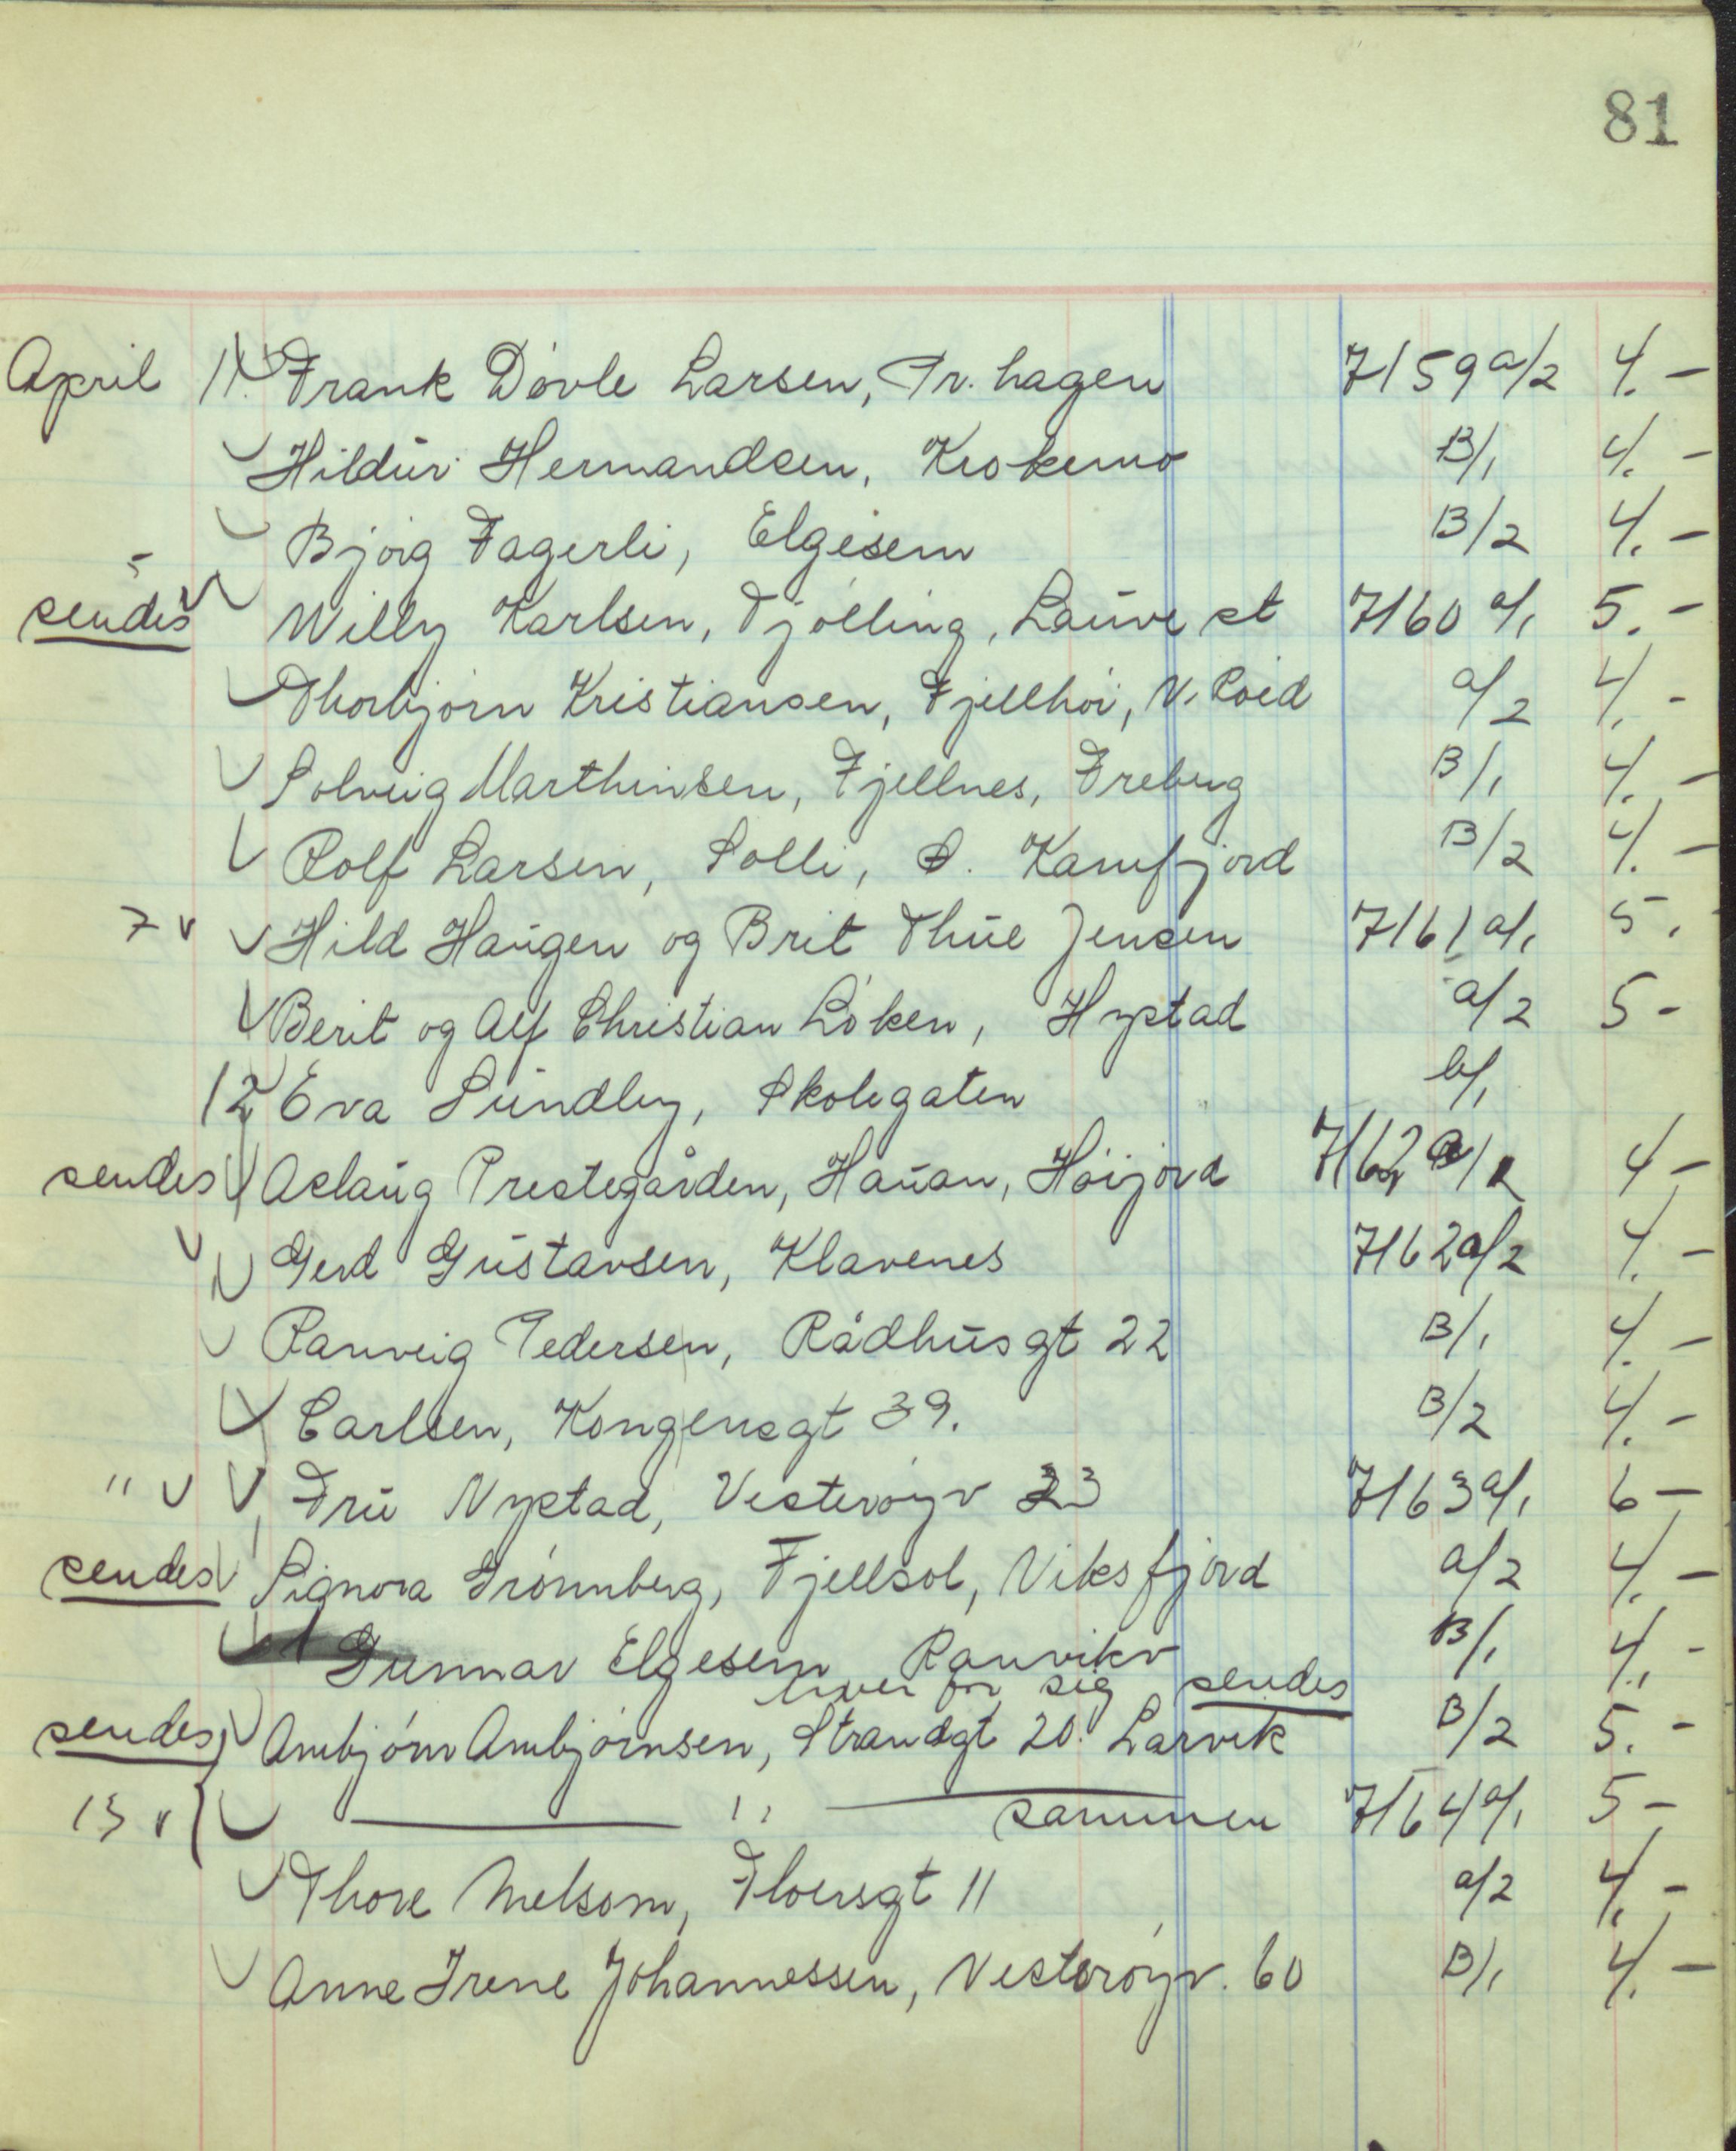 81
April 11. Frank Dövle Larsen, Pr. hagen 7159 a/2 4. -
Hildur Hermandsen, Krokemo B/1 4. -
Bjørg Fagerli, Elgesem B/2 4. -
sendes Willy Karlsen, Tjölling, Lauve st 7160 a/1 5. -
Thorbjørn Kristiansen, Fjellhöi, N. Roed a/2 4. -
Solveig Marthinsen, Fjellnes, Freberg B/1 4. -
Rolf Larsen, Solli, S. Kamfjord B/2 4. -
7 v Hild Haugen og Brit Thue Jensen 7161 a/1 5.
Berit og Alf Christian Löken, Hystad a/2 5 -
12 Eva Sundby, Skolegaten b/1
sendes Aslaug Prestegården, Hauan, Höijord 7162 a/1 4 -
Gerd Gustavsen, Klavenes 7162 a/2 4. -
Ranveig Pedersen, Rådhusgt 22 B/1 4. -
Carlsen, Kongensgt 39. B/2 4. -
" Fru Nystad, Vesteröyv 33 7163 a/1 6 -
sendes Signora Grönnberg, Fjellsol, Viksfjord a/2 4. -
Gunnar Elgesem Ranvikv B/1 4. -
hver for sig sendes
sendes Arnbjörn Arnbjörnsen, Strandgt 20. Larvik B/2 5. -
13 v — " — sammen 7164 a/1 5 -
Thore Melsom, Thorsgt 11 a/2 4. -
Anne Irene Johannessen, Vesteröyv. 60 B/1 4. -